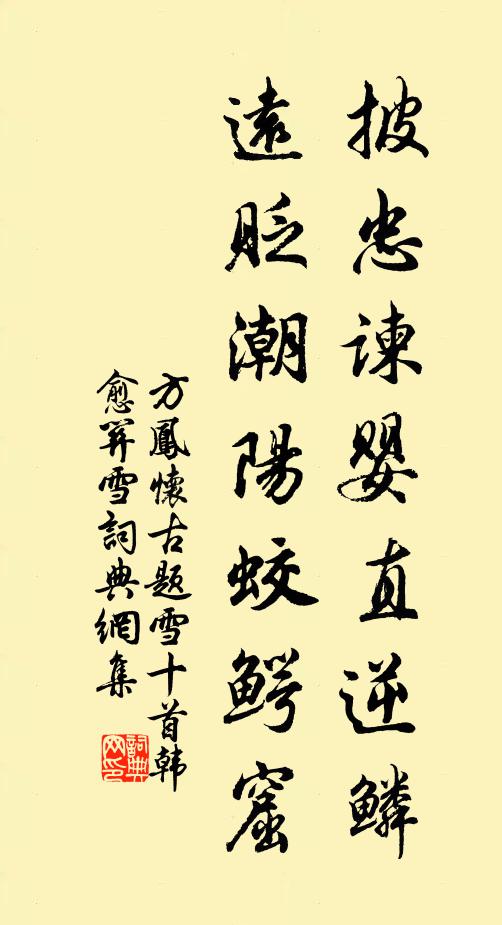 披忠諫嬰直逆鱗
遠貶潮陽蛟鳄窟
方鳳懷古題雪十首韩
愈羿雪詞典網集
詞典网印